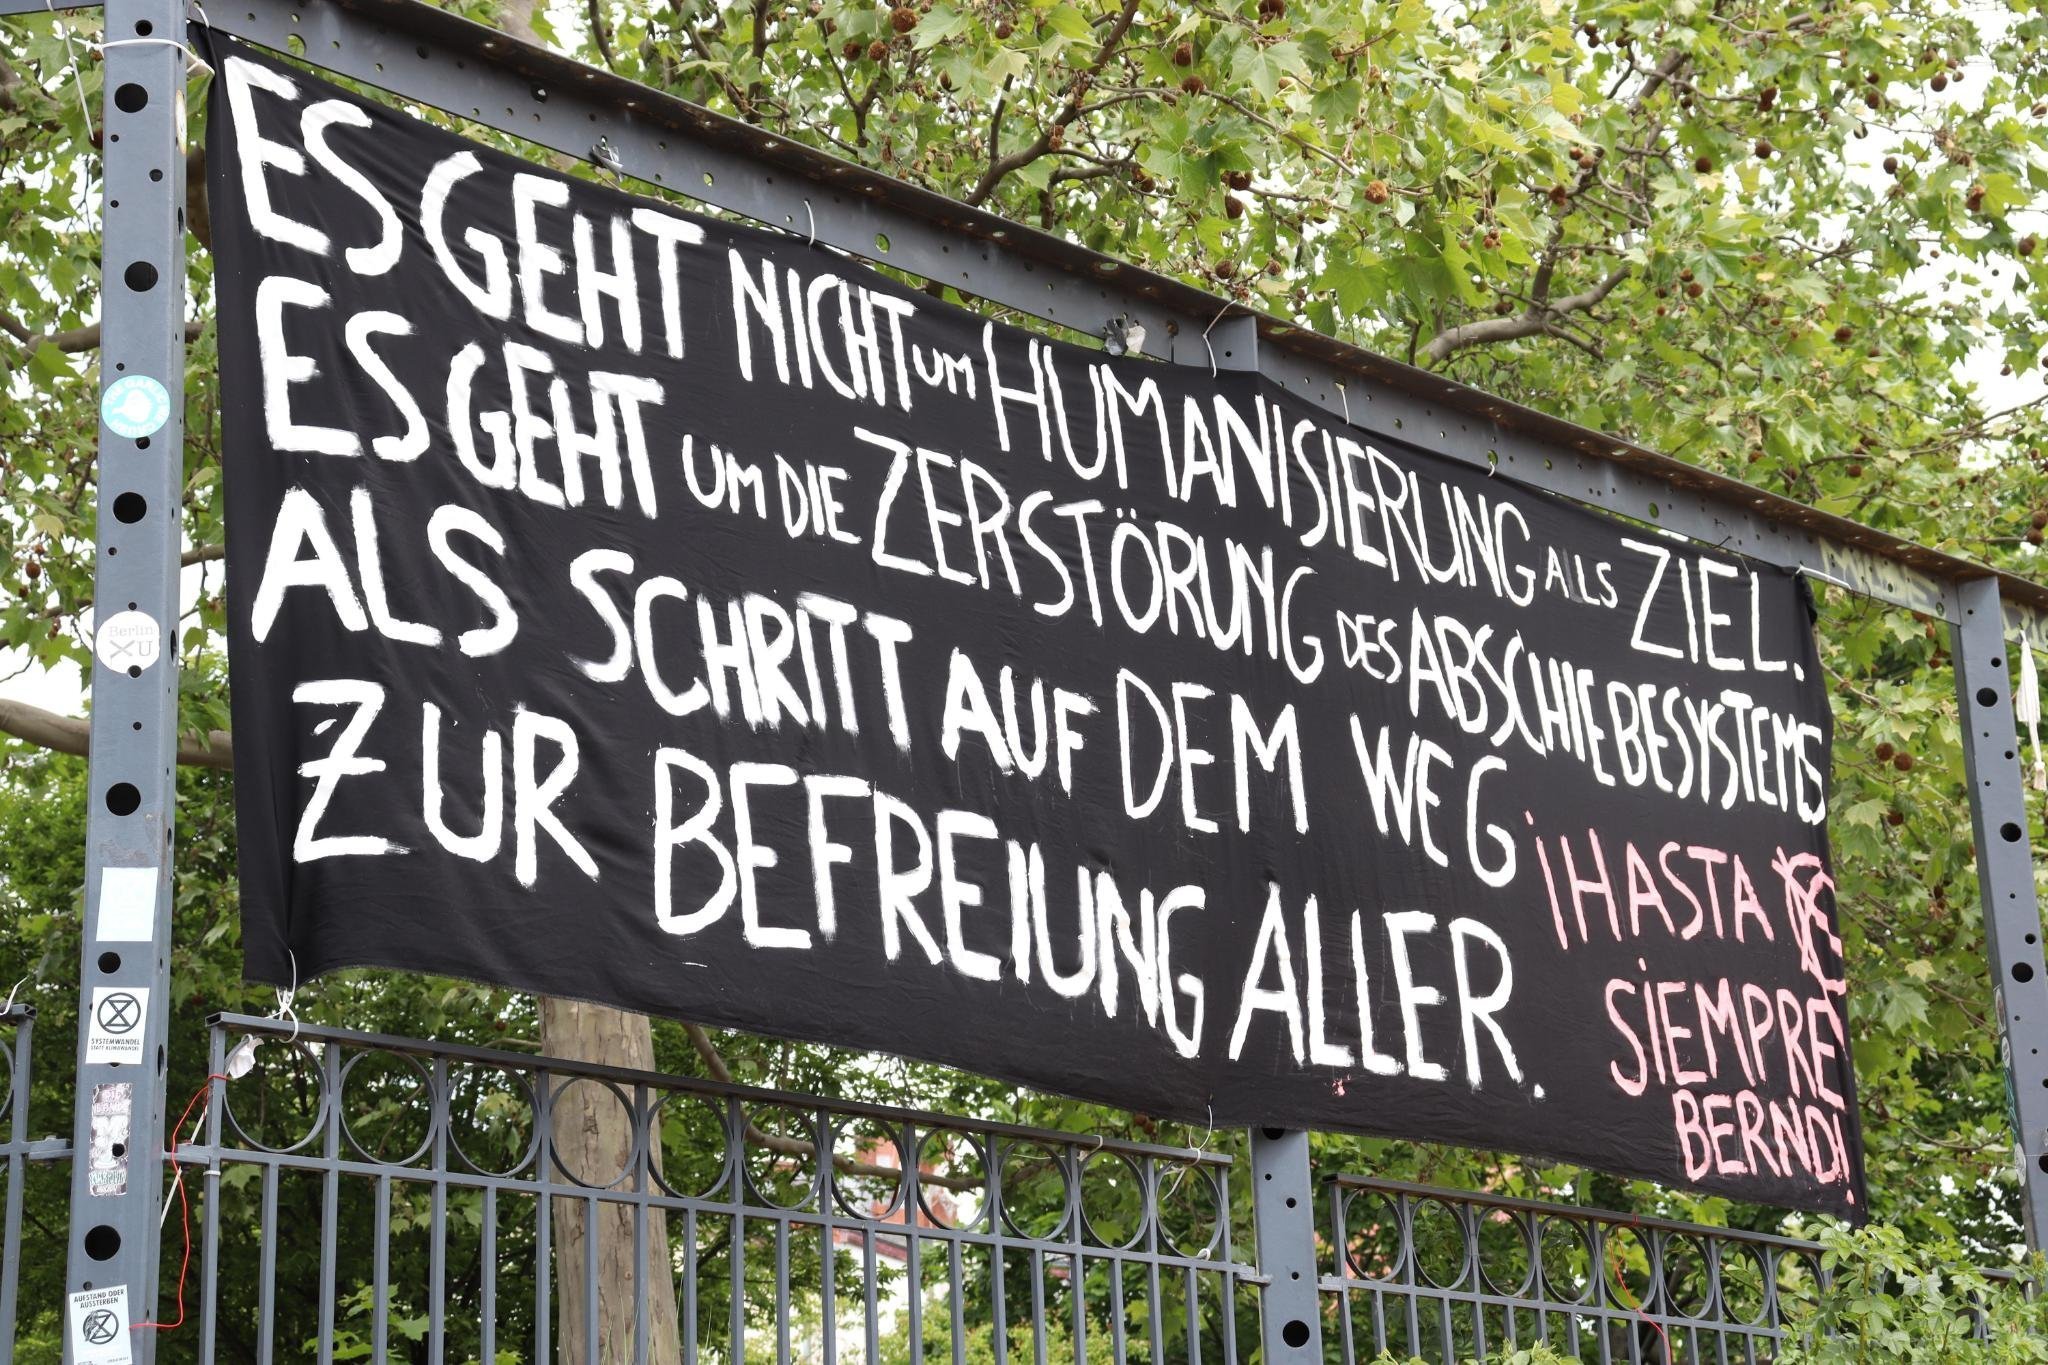 ES GEHT NICHT UM HUMANISIERUNG ALS ZIEL.
ES GEHT UM DIE ZERSTÖRUNG DES ABSCHIEBESYSTEMS
ALS SCHRITT AUF DEM WEG
ZUR BEFREIUNG ALLER.
¡HASTA
SIEMPRE
BERND!
Berlin
XU
SYSTEMWANDEL
STATT KLIMAWANDEL
AUFSTAND ODER
AUSSTERBEN